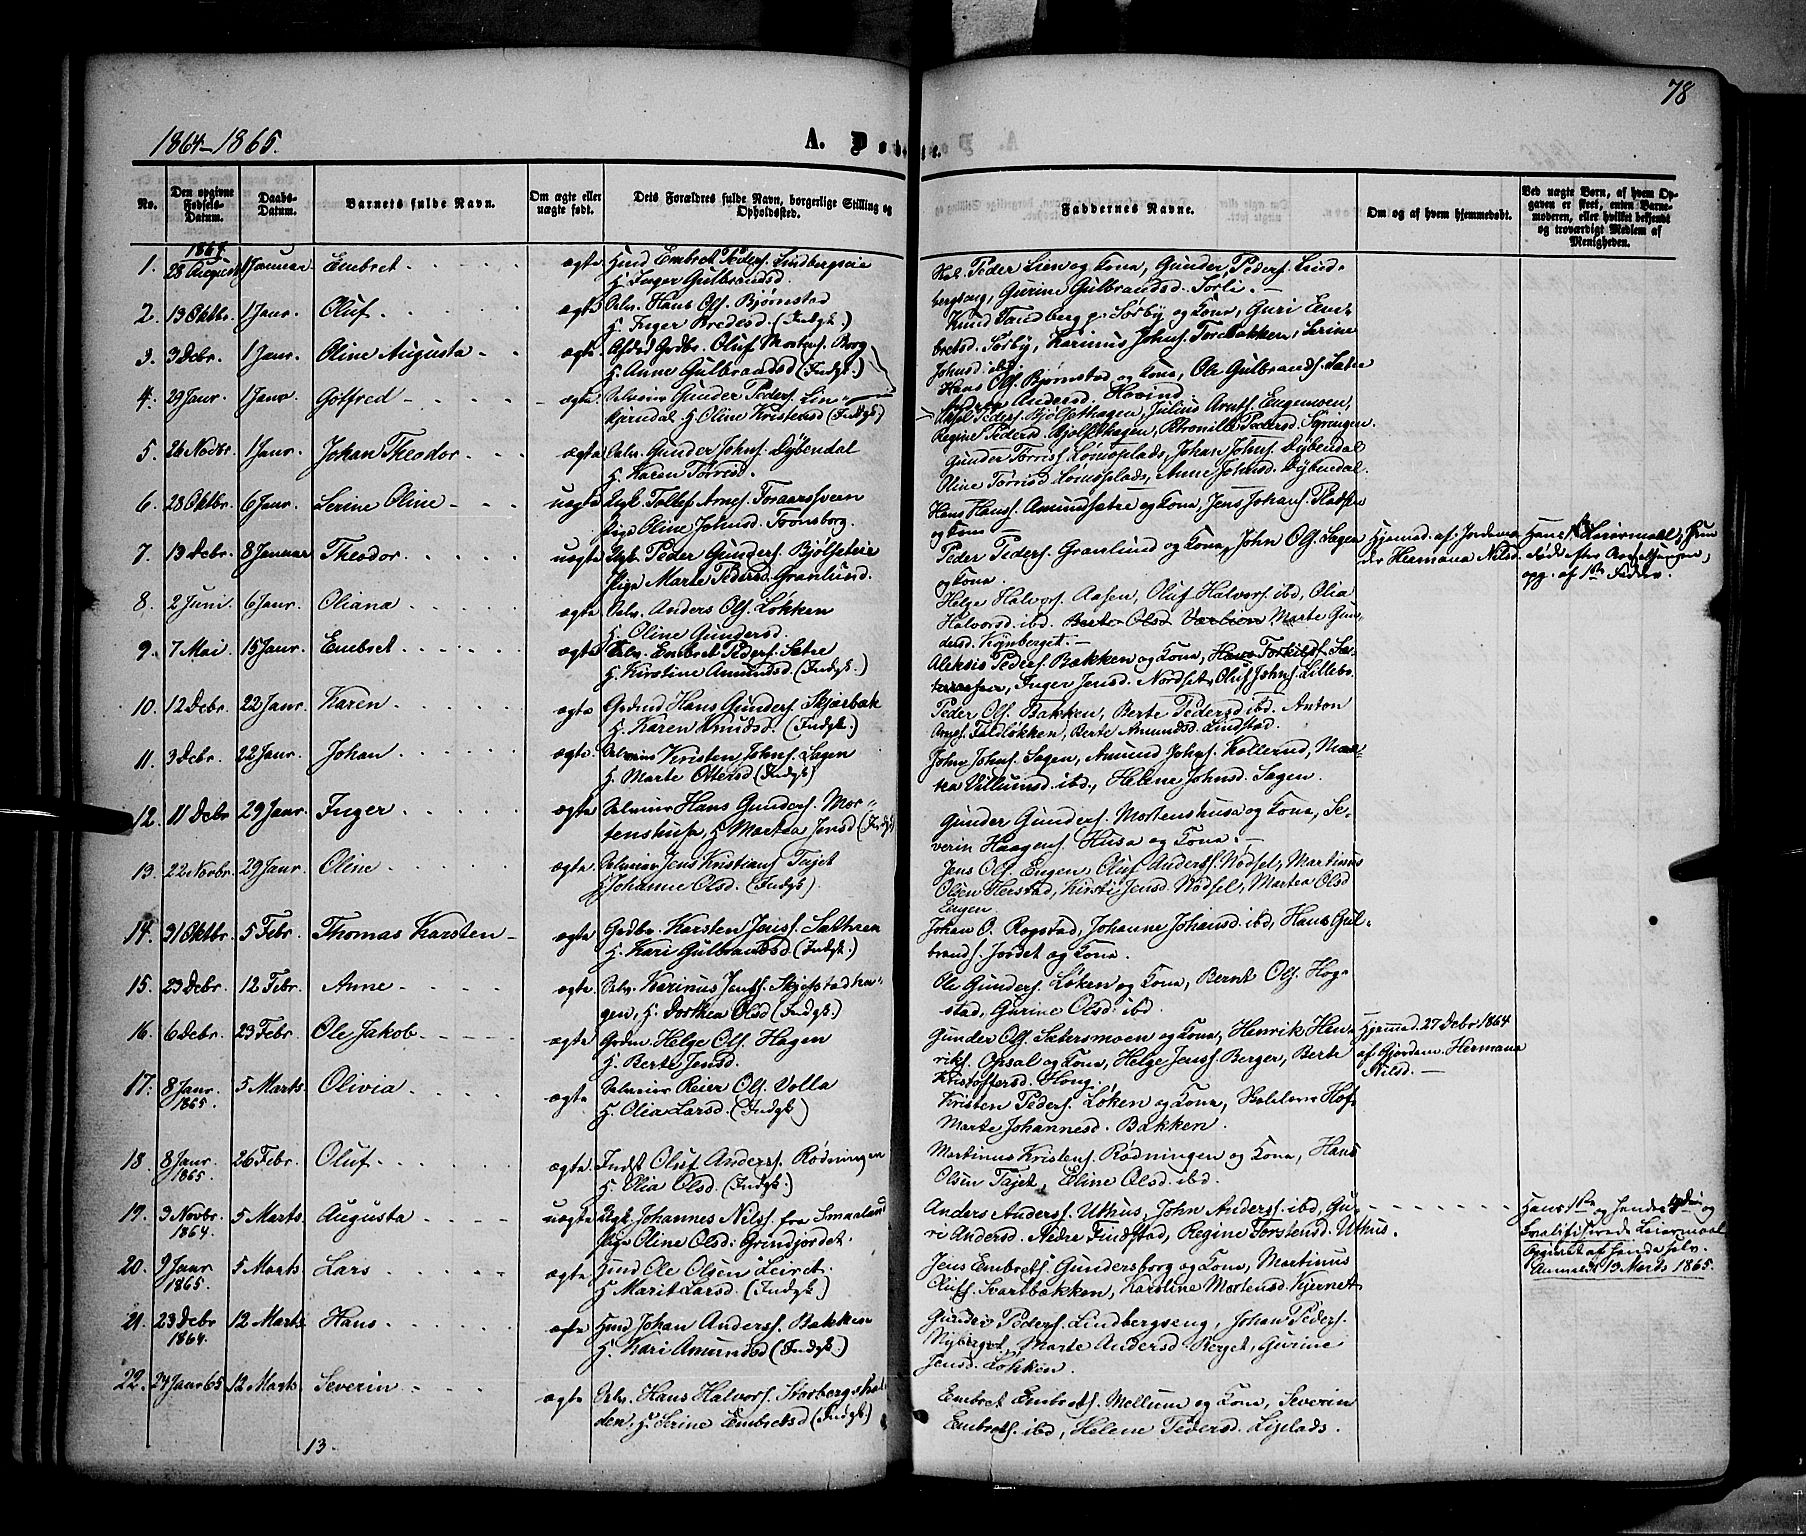 78
1864-1865.
A. Døbte.
No.
Den opgivne Fødsels-Datum.
Daabs-Datum.
Barnets fulde Navn.
Om ægte eller uægte født.
Dets Forældres fulde Navn, borgerlige Stilling og Opholdssted.
Faddernes Navne.
Om og af hvem hjemmedøbt.
Ved uægte Børn, af hvem Opgaven er skeet, enten Barnemoderen, eller hvilket bekjendt og troværdigt Medlem af Menigheden.
1864
1. 28 August 1 Januar Embret ægte Huud Embret Peders. Lindbergseie
H. Inger Gulbrandsd.
Peder Lien og Kona, Gunder Peders. Lind-
bergseng, Gurine Gulbrandsd. Torli.
2. 19 Oktbr. 1 Janr. Oluf ægte Selv. Hans Ols. Bjørnstad
H. Inger Bredesd. (Indgk.)
Knud Tandberg p. Sørby og Kona, Guri Em-
bretsd. Sørby, Karinus Johns. Torebakken, Serine
Johnsd. ibd.
3. 3 Debr. 1 Janr. Oline Augusta ægte Grdbr. Oluf Mortens. Borg
H. Anne Gulbrandsd (Indgk.)
Hans Ols. Bjørnstad og Kona, Ole Gulbrands. Sætre
Andersd. Hovind
4. 29 Janr. 1 Janr. Gotfred ægte Selveier Gunder Peders. Lin-
kjendal H. Oline Kristensd (Indgk)
Peders. Bjølsethagen, Julius Arnts. Engmoen,
Regine Pedersd. Bjølsethagen, Petronille Pedersd. Syringen.
5. 26 Novbr. 1 Janr. Johan Theodor ægte Selv. Gunder Johns. Dybendal
H. Karen Torrisd.
Gunder Torriss. Lømoplads, Johan Johns. Dybendal
Oline Torrisd Lømoplads, Anne Johnsd. Dybendal.
6. 28 Oktbr. 6 Janr. Serine Oline uægte Ugk. Tollef Arnes.
Pige Oline Johnsd. Tronsborg.
Hans Hanss. Amundsætre og Kona, Jens Johans.
og Kona
7. 13 Debr. 8 Januar Theodor uægte Ugk. Peder Gunders. Bjølseteie
Pige Marte Pedersd. Granlund.
Peder Peders. Granlund og Kona, John Ols. Sagen
og Kona.
Hjemmed. af Jordemo-
der Hermana Nilsd.
Hans 1ste Leiermaal,
døde efter
opg. af 1ste Fader.
8. 2 Juni. 6 Janr. Oliana ægte Selv. Anders Ols. Løkken
H. Oline Gundersd.
Helge Halvors. Aasen, Oluf Halvors. ibd, Olia
Halvorsd. ibd. Berte Olsd Værlien Marte Gun-
dersd. Kynberget.
9. 7 Mai 15 Janr. Embret ægte Selv. Embret Peders. Sætre
H. Kirstine Amundsd (Indgk.)
Aleksis Peders. Bakken og Kona, Hans Torkilds. Sæ-
Inger Jensd. Nordset, Oluf Johns. Lillebo
10. 12 Debr. 22 Janr. Karen ægte Grdmd Hans Gunders. Skjærbæk
H. Karen Knudsd. (Indgk.)
Peder Ols. Bakken, Berte Pedersd ibd. Anton
Arnes. Foldløkken, Berte Amundsd. Lindstad.
11. 3 Debr. 22 Janr. Johan ægte Selveier Kristen Johns. Sagen
H. Marte Ottersd (Indgk)
John Johns. Sagen, Amund Johns. Kollerud, Mar-
tea Villumsd. ibd., Helene Johnsd. Sagen.
12. 11 Debr 29 Janr. Inger ægte Selveier Hans Gunders. Mor-
tenshusa, H. Martea Jensd (Indgk)
Gunder Gunders. Mortenshusa og Kona, Se-
verin Haagens. Husa og Kona.
13. 22 Novbr. 29 Janr. Oline ægte Selveier Jens Kristians. Tajet
H. Johanne Olsd. (Indgk).
Jens Ols. Engen, Oluf Anders. Nødsel, Martinus
Olsen Herstad, Kirsti Jensd. Nødsel, Martea Olsd
Engen
14. 31 Oktbr. 5 Febr. Thomas Karsten ægte Grdbr. Karsten Jenss. Sætren
H. Kari Gulbrandsd. (Indgk.)
Johan O. Rogstad, Johanne Johansd. ibd, Hans Gul-
brands. Jordet og Kona.
15. 23 Debr. 12 Febr. Anne ægte Selv. Karinus Jonss. Skjefstadha-
gen, H. Dorthea Olsd (Indgk.)
Ole Gunders. Løken og Kona, Bernt Ols. Hog-
stad, Gurine Olsd. ibd.
16. 6 Debr. 23 Febr. Ole Jakob ægte Grdm. Helge Ols. Hagen
H. Berte Jensd.
Gunder Ols. Sætersmoen og Kona, Henrik Hen-
riks. Opsal og Kona, Helge Jenss. Berger, Berte
Kristoffersd. Hong.
Hjemmed. 27 Debr 1864
af Gjordem. Hermana
Nilsd.
17. 8 Janr. 1865. 5 Marts Olivia ægte Selveier Reier Ols. Volla
H. Olia Larsd. (Indgk)
Kristen Peders. Løken og Kona,
Marte Johannesd. Bakken.
18. 8 Janr. 1865. 26 Febr. Oluf ægte Indst Oluf Anders. Rødningen
H. Olia Olsd. (Indgk.)
Martinus Kristens. Rødningen og Kona, Hans
Olsen Tajet, Eline Olsd. ibd.
19. 3 Novbr. 1864. 5 Marts Augusta uægte Ugk. Johannes Nilss. fra Smaaland
Pige Oline Olsd. Grindjordet.
Anders Anderss. Uthus, John Anderss. ibd, Gu-
ri Andersd. Nedre Findstad, Regine Torstensd. Uthus.
Hans 1ste og hendes 4de og
kvalificerede Leiermaal
Opgivet af hende selv.
Anmeldt 13 Marts 1865.
20. 9 Janr 1865. 5 Marts Lars ægte Huud Ole Olsen Leiret.
H. Marit Larsd. (Indgk.)
Jens Embrets. Gundersborg og Kona, Martinus
Olufs. Svartbakken, Karoline Mortensd. Kjernet
21. 23 Debr 1864. 12 Marts Hans ægte Huud Johan Anderss. Bakken
H. Kari Amundsd (Indgk.)
Gunder Peders. Lindbergseng, Johan Peders.
Nyberget, Marte Andersd Berget, Gurine
Jensd. Løkken.
22. 27 Janr 65 12 Marts Severin ægte Selv. Hans Halvors. Storbergsha-
den, H. Serine Embretsd (Indgk)
Embret Embrets. Mellum og Kona, Severin
Embrets. ibd, Helene Pedersd. Ligelads.
13.